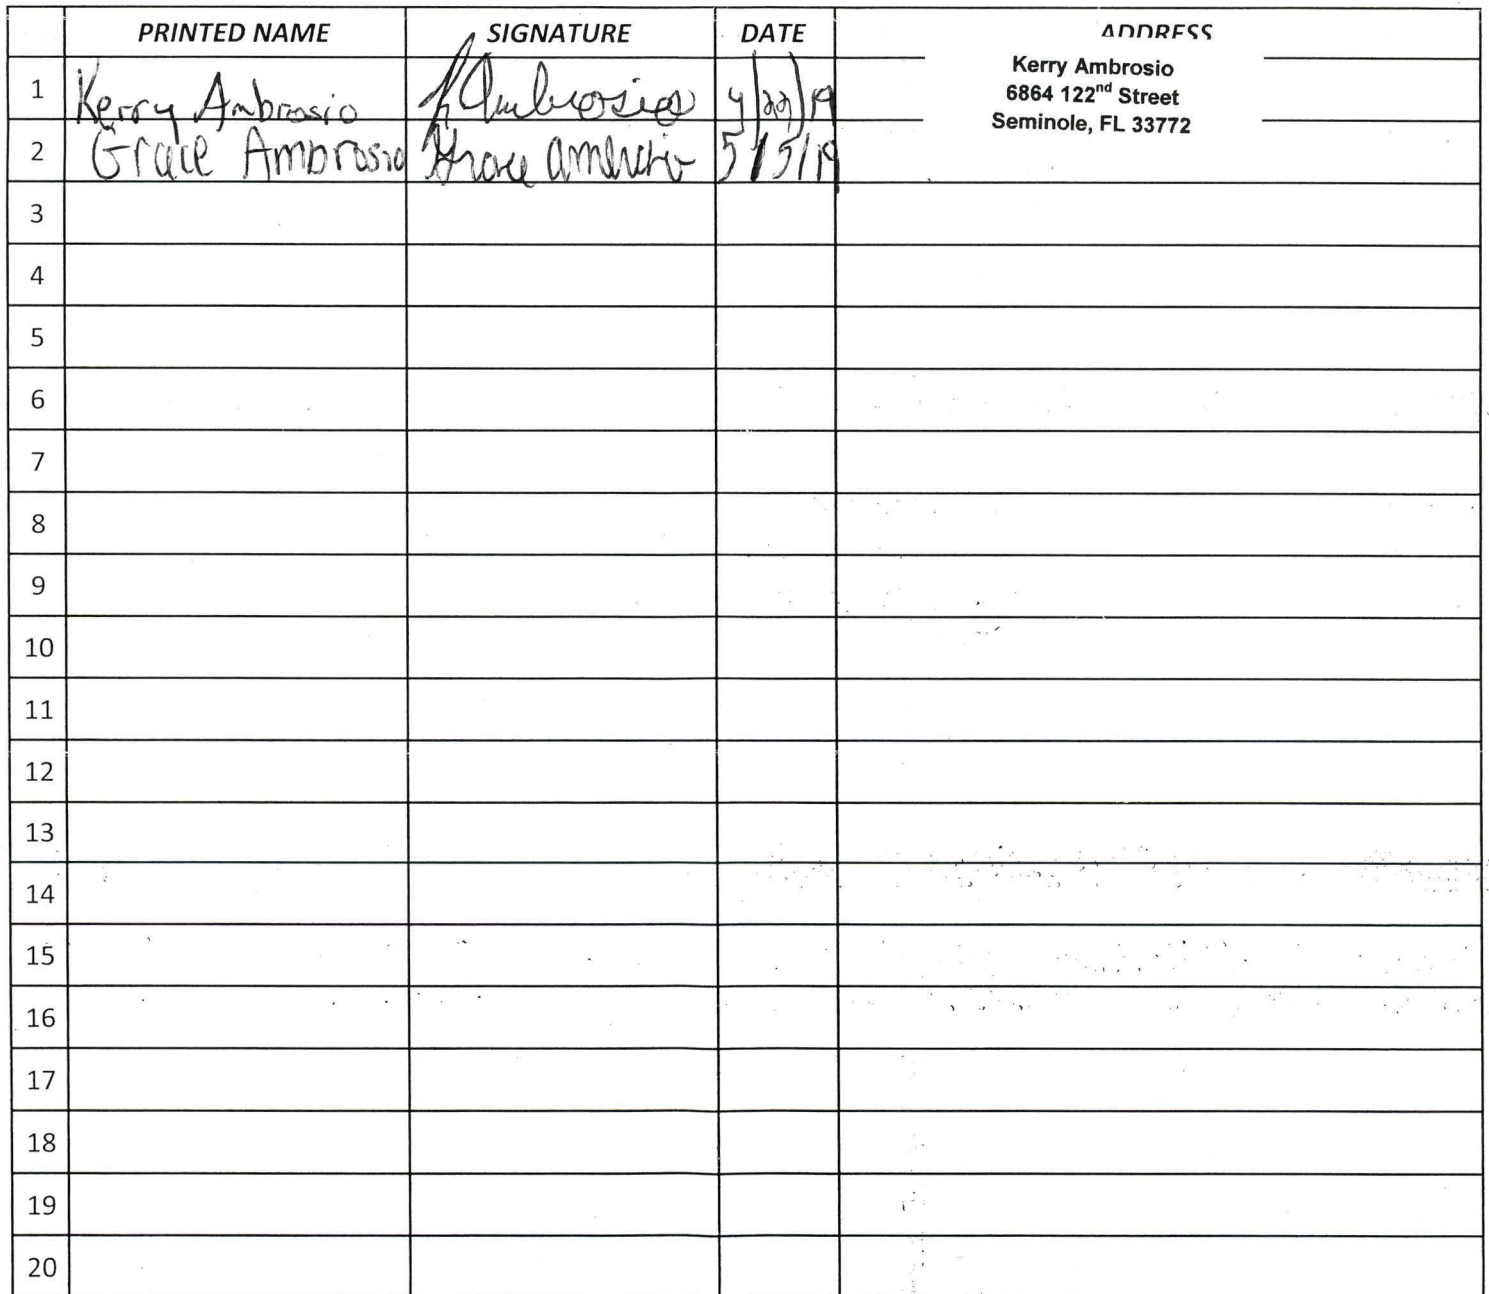 PRINTED NAME SIGNATURE DATE ADDRESS
1 Kerry Ambrosio K Ambrosio 4/22/19 Kerry Ambrosio
6864 122nd Street
Seminole, FL 33772
2 Grace Ambrosio Grace Ambrosio 5/5/19
3
4
5
6
7
8
9
10
11
12
13
14
15
16
17
18
19
20